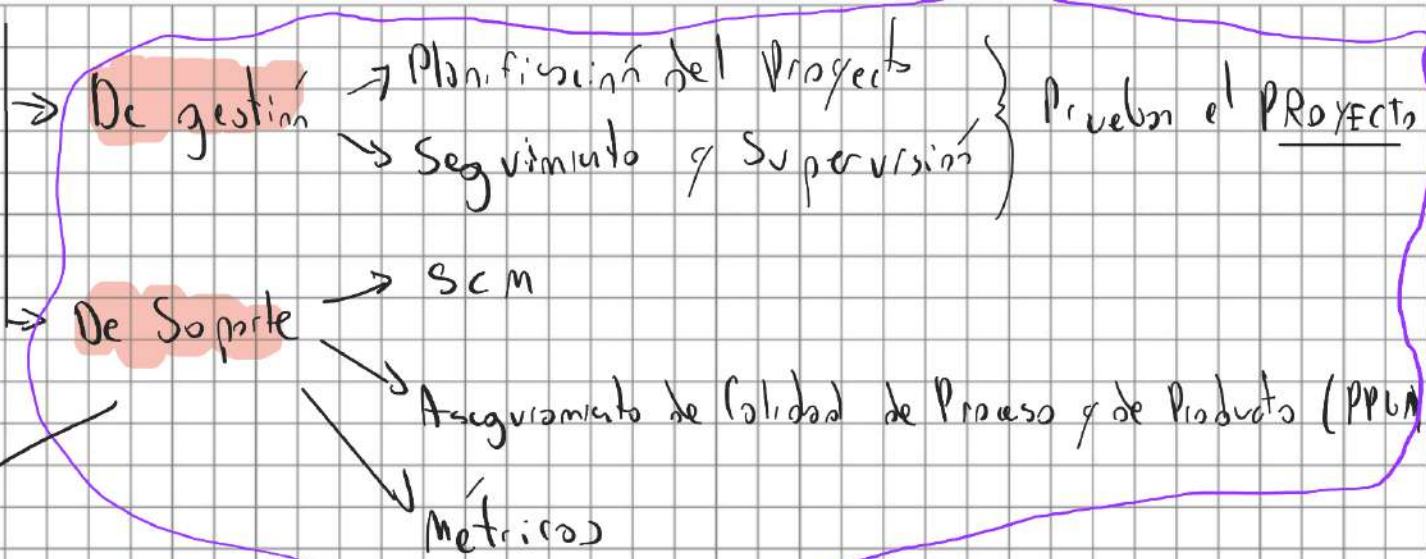 De gestión
Planificación del Proyecto
Seguimiento y Supervisión
Prueban el PROYECTO
De Soporte
SCM
Aseguramiento de Calidad de Proceso y de Producto
Métricas